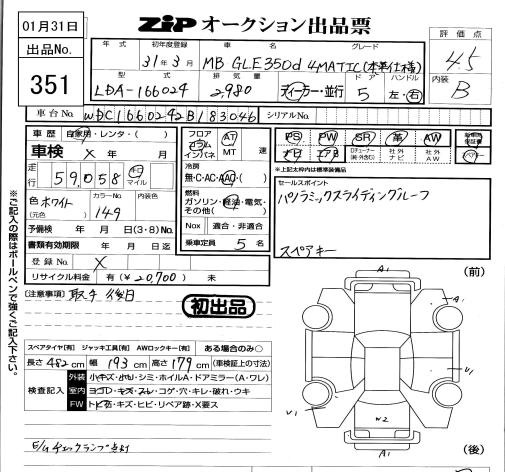 01月31日
ZiP オークション出品票
出品No.
351
年式
初年度登録
車名
グレード
評価点
31年3月
MB GLE350d 4MATIC(本革仕様)
4.5
型式
排気量
ドア
ハンドル
LDA-166024
2,980
ディーラー・並行
5
左・右
内装
B
車台No.
WDC1660242B183046
シリアルNo.
車歴
自家用・レンタ・( )
車検
X年 月
走行
59,058
キロ
マイル
色
(元色)
ホワイト
カラーNo.
149
内装色
予備検 年 月 日(3・8)No.
書類有効期限 年 月 日迄
登録No.
X
リサイクル料金 有(¥20,700) 未
フロア
コラム
インパネ
AT
MT
速
冷房
無・C・AC・AAC・( )
燃料
ガソリン・軽油・電気・
その他( )
Nox
適合・非適合
乗車定員
5名
PS
PW
SR
革
AW
ナビ
エアB
社外
ナビ
社外
AW
※上記太枠内は標準装備品
セールスポイント
パノラミックスライディングルーフ
スペアキー
※ご記入の際はボールペンで強くご記入下さい。
[注意事項]
取手 後日
初出品
スペアタイヤ[有] ジャッキ工具[有] AWロックキー[有] ある場合のみ○
長さ 482cm 幅 193cm 高さ 179cm (車検証上の寸法)
検査記入
外装
小キズ・小凹・シミ・ホイルA・ドアミラー(A・ワレ)
室内
ヨゴレ・キズ・スレ・コゲ・穴・キレ・破れ・ウキ
FW
トビ石・キズ・ヒビ・リペア跡・X要ス
E/Gチェックランプ点灯
(前)
A1
A1
U1
U1
W2
A1
(後)